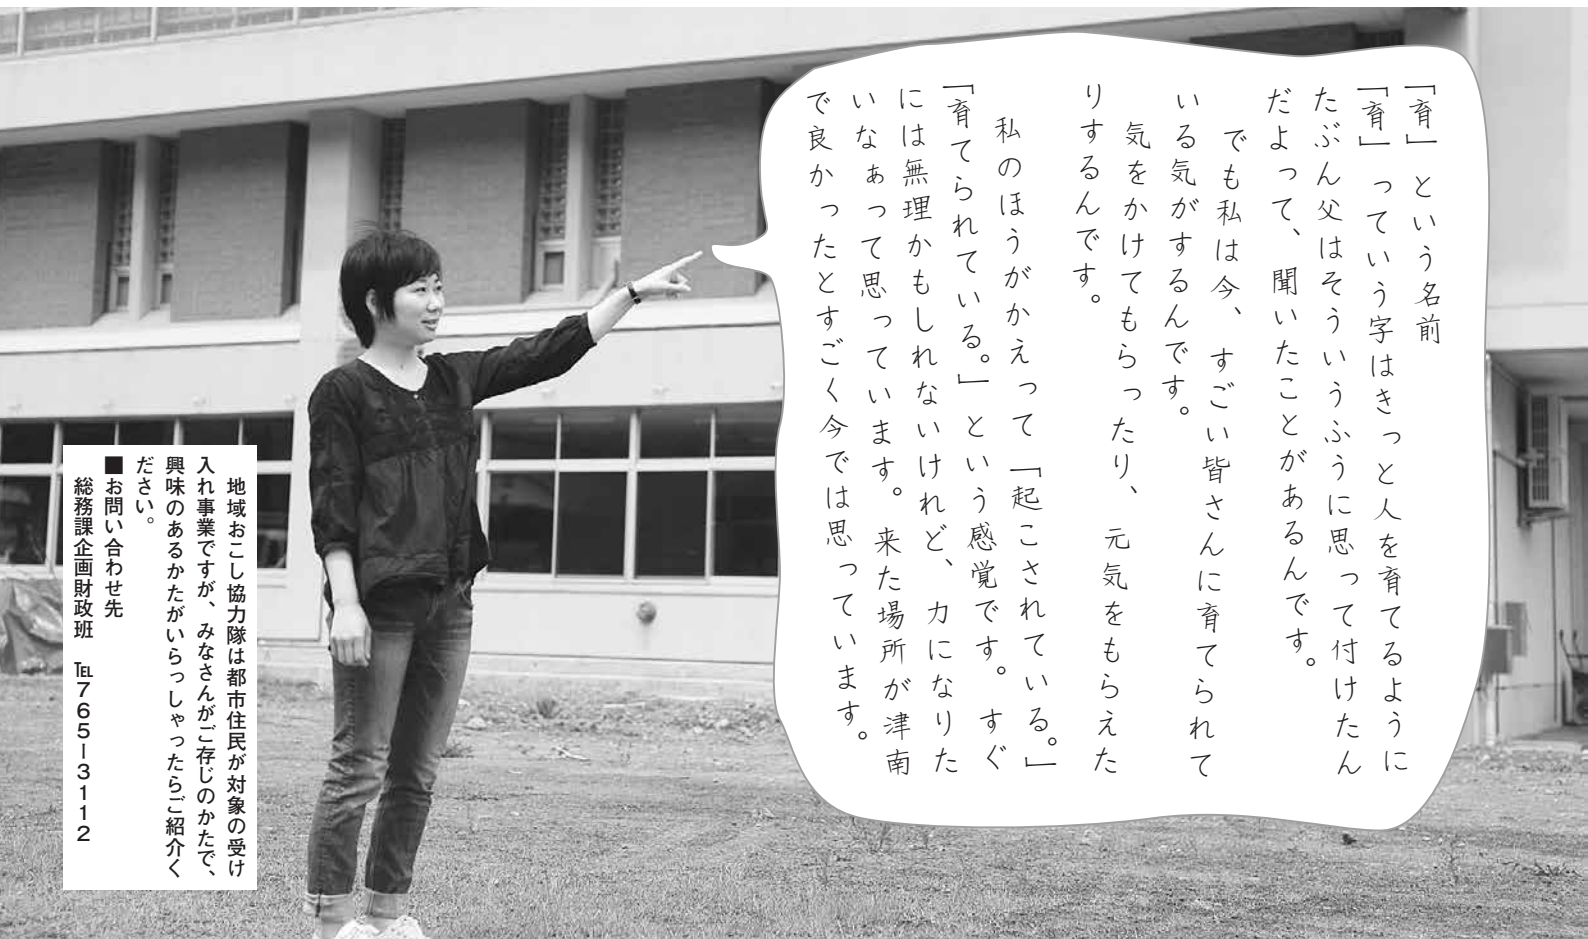 「育」という名前
「育」っていう字はきっと人を育てるように
たぶん父はそういうふうに思って付けたん
だよって、聞いたことがあるんです。
でも私は今、すごい皆さんに育てられて
いる気がするんです。
気をかけてもらったり、元気をもらえた
りするんです。
私のほうがかえって「起こされている。」
「育てられている。」という感覚です。すぐ
には無理かもしれないけれど、力になりた
いなぁって思っています。来た場所が津南
で良かったとすごく今では思っています。
地域おこし協力隊は都市住民が対象の受け
入れ事業ですが、みなさんがご存じのかたで、
興味のあるかたがいらっしゃったらご紹介く
ださい。
■お問い合わせ先
総務課企画財政班 ℡765ー3112